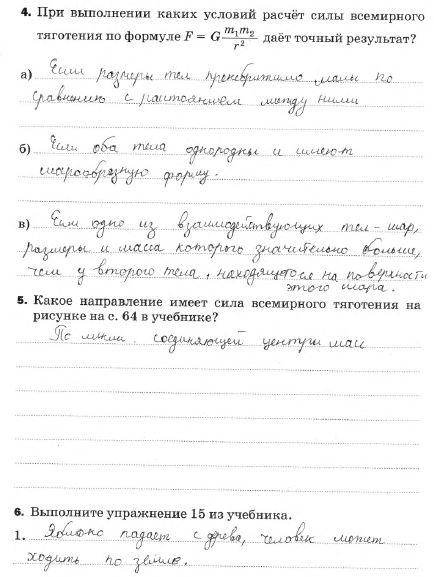 4. При выполнении каких условий расчёт силы всемирного
тяготения по формуле F = G m₁m₂/r² даёт точный результат?
а) Если размеры тел пренебрежимо малы по
сравнению с расстоянием между ними
б) Если оба тела однородны и имеют
шарообразную форму.
в) Если одно из взаимодействующих тел – шар,
размеры и масса которого значительно больше,
чем у второго тела, находящегося на поверхности
этого шара.
5. Какое направление имеет сила всемирного тяготения на
рисунке на с. 64 в учебнике?
По линии соединяющей центры масс
6. Выполните упражнение 15 из учебника.
1. Яблоко падает с древа, человек может
ходить по земле.